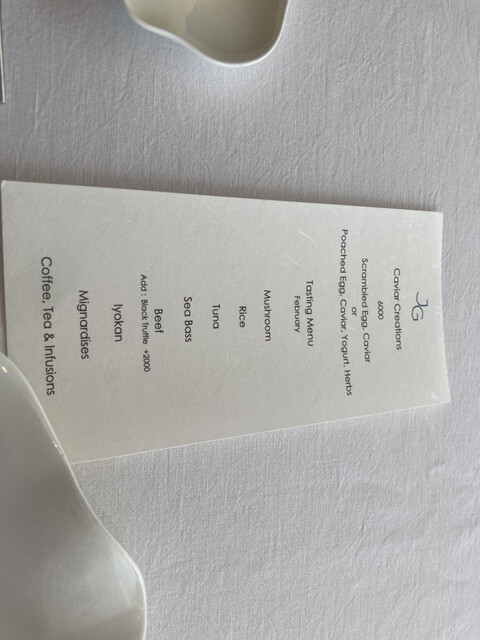 JG
Caviar Creations
6000
Scrambled Egg, Caviar
or
Poached Egg, Caviar, Yogurt, Herbs
Tasting Menu
February
Mushroom
Rice
Tuna
Sea Bass
Beef
Add : Black Truffle +2000
Iyokan
Mignardises
Coffee, Tea & Infusions